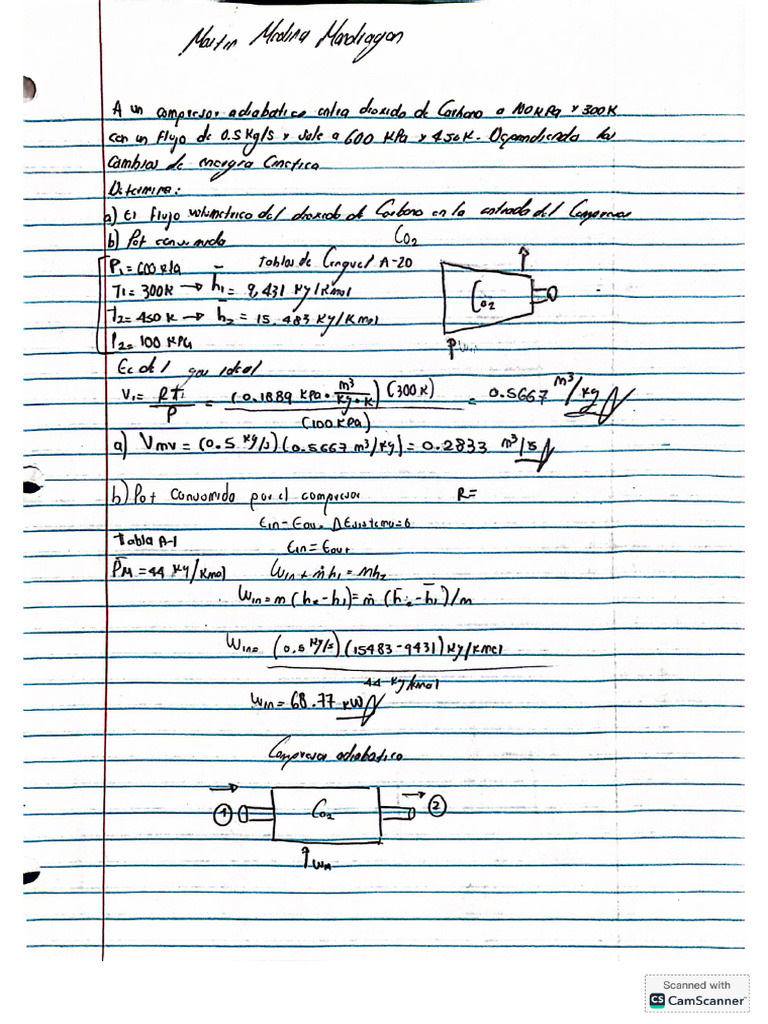 Martin Medina Mondragon
A un compresor adiabatico entra dioxido de Carbono a 100 KPa y 300K
con un flujo de 0.5 Kg/s y sale a 600 KPa y 450 K. Despreciando los
Cambios de energia Cinetica
Determine:
a) El flujo volumetrico del dioxido de Carbono en la entrada del Compresor
b) Pot consumida
CO2
P1 = 600 KPa
Tablas de Cengel A-20
T1 = 300K → h̄1 = 9,431 KJ/Kmol
T2 = 450 K → h̄2 = 15,483 KJ/Kmol
P2 = 100 KPa
CO2
Ec de l gas ideal
V1 = RT1/P = (0.1889 KPa · m³/Kg·K)(300 K)/(100 KPa) = 0.5667 m³/Kg
a) Vmv = (0.5 Kg/s)(0.5667 m³/Kg) = 0.2833 m³/s
b) Pot Consumida por el compresor R=
Ein - Eout = ΔEsistema = 0
Tabla A-1
Ein = Eout
PM = 44 Kg/Kmol
Win + ṁh1 = ṁh2
Win = m (h2 - h1) = ṁ (h̄2 - h̄1) / m
Win = (0.5 Kg/s)(15483 - 9431) KJ/Kmol
44 Kg/Kmol
Win = 68.77 KW
Compresor adiabatico
1 CO2 2
Win
Scanned with
CS CamScanner